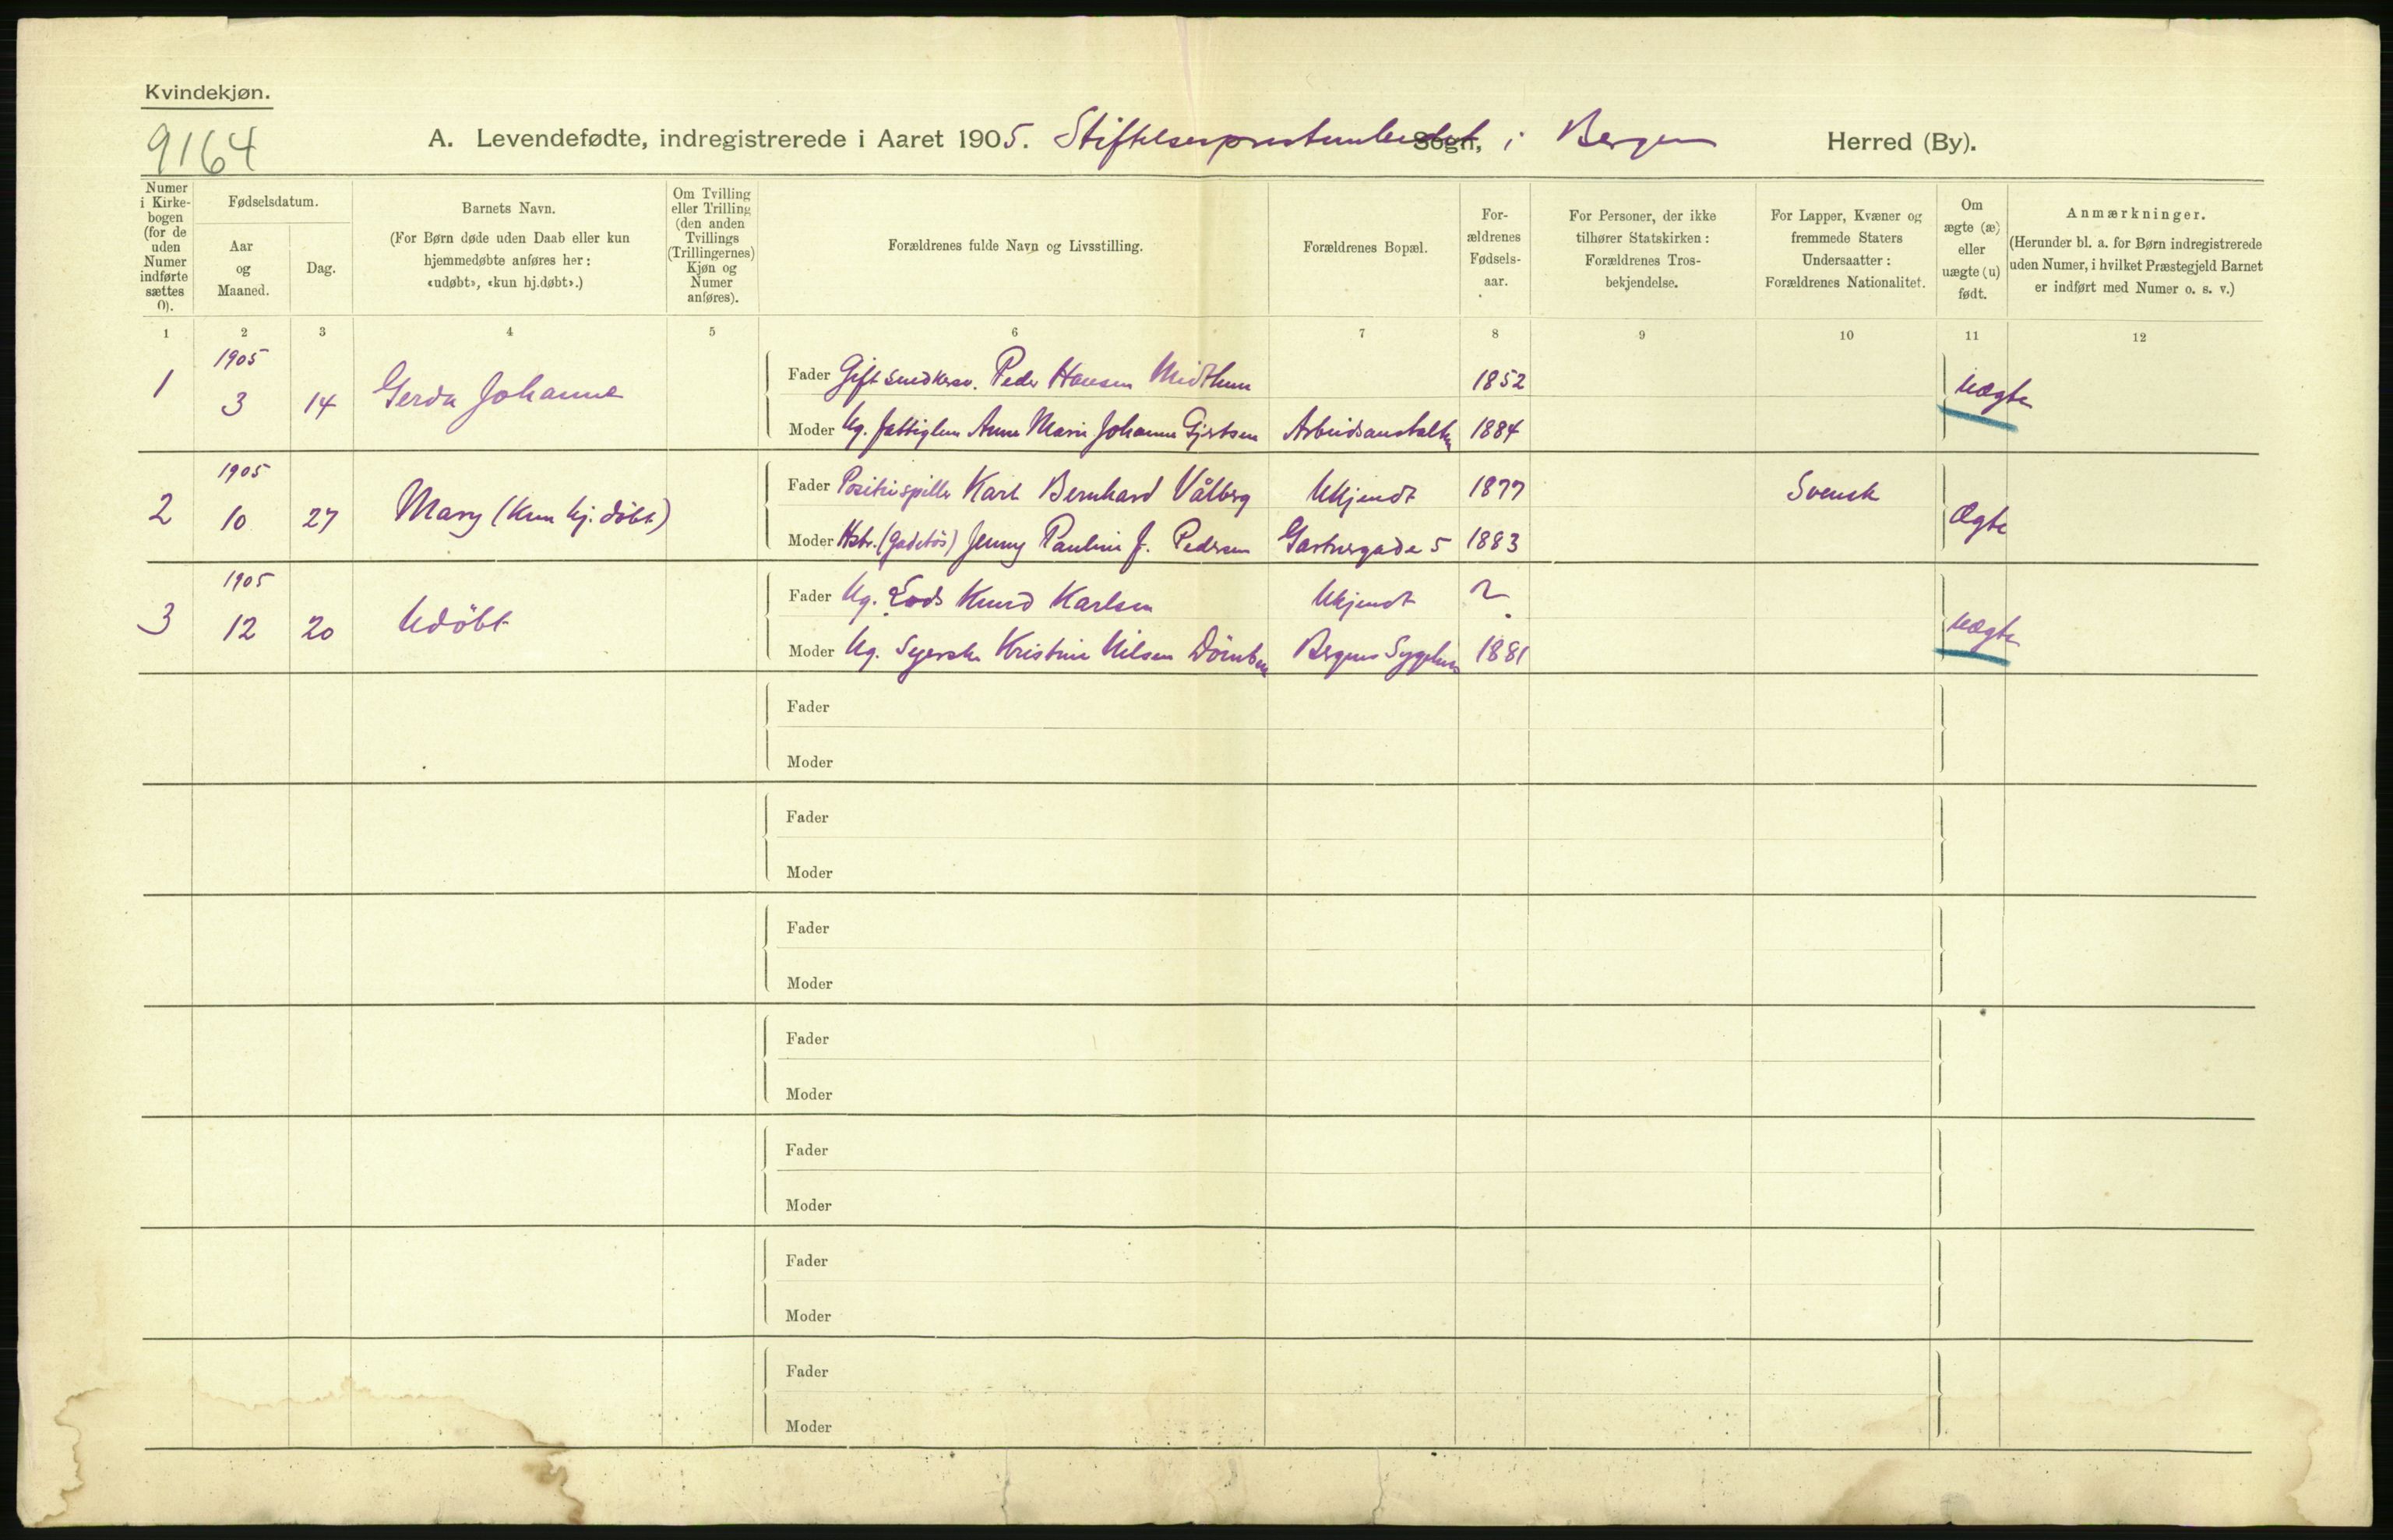 Kvindekjøn.
9164
A. Levendefødte, indregistrerede i Aaret 1905. Stiftelsesprestembedet Sogn, i Bergen Herred (By).
Numer i Kirkebogen (for de uden Numer indførte sættes 0).
Fødselsdatum.
Aar og Maaned.
Dag.
Barnets Navn.
(For Børn døde uden Daab eller kun hjemmedøbte anføres her: «udøbt», «kun hj.døbt».)
Om Tvilling eller Trilling (den anden Tvillings (Trillingernes) Kjøn og Numer anføres).
Forældrenes fulde Navn og Livsstilling.
Forældrenes Bopæl.
For-ældrenes Fødsels-aar.
For Personer, der ikke tilhører Statskirken: Forældrenes Tros-bekjendelse.
For Lapper, Kvæner og fremmede Staters Undersaatter: Forældrenes Nationalitet.
Om ægte (æ) eller uægte (u) født.
Anmærkninger.
(Herunder bl. a. for Børn indregistrerede uden Numer, i hvilket Præstegjeld Barnet er indført med Numer o. s. v.)
1 2 3 4 5 6 7 8 9 10 11 12
1905
1 3 14 Gerda Johanne
Fader Gift snedkersv. Peder Hansen Midthun 1852
Uægte
Moder Ug. fattiglem Anna Marie Johanne Gjertsen Arbeidsanstalten 1884
1905
2 10 27 Mary (kun hj. døbt)
Fader Positivspiller Karl Bernhard Vålberg Ukjendt 1877 Svensk
Ægte
Moder Hstr. (Gadetøs) Jenny Pauline J. Pedersen Gartnergade 5 1883
1905
3 12 20 Udøbt
Fader Ug. Lods Knud Karlsen Ukjendt ?
Uægte
Moder Ug. Syerske Kristine Nilsen Bergens Sygehus 1881
Fader
Moder
Fader
Moder
Fader
Moder
Fader
Moder
Fader
Moder
Fader
Moder
Fader
Moder